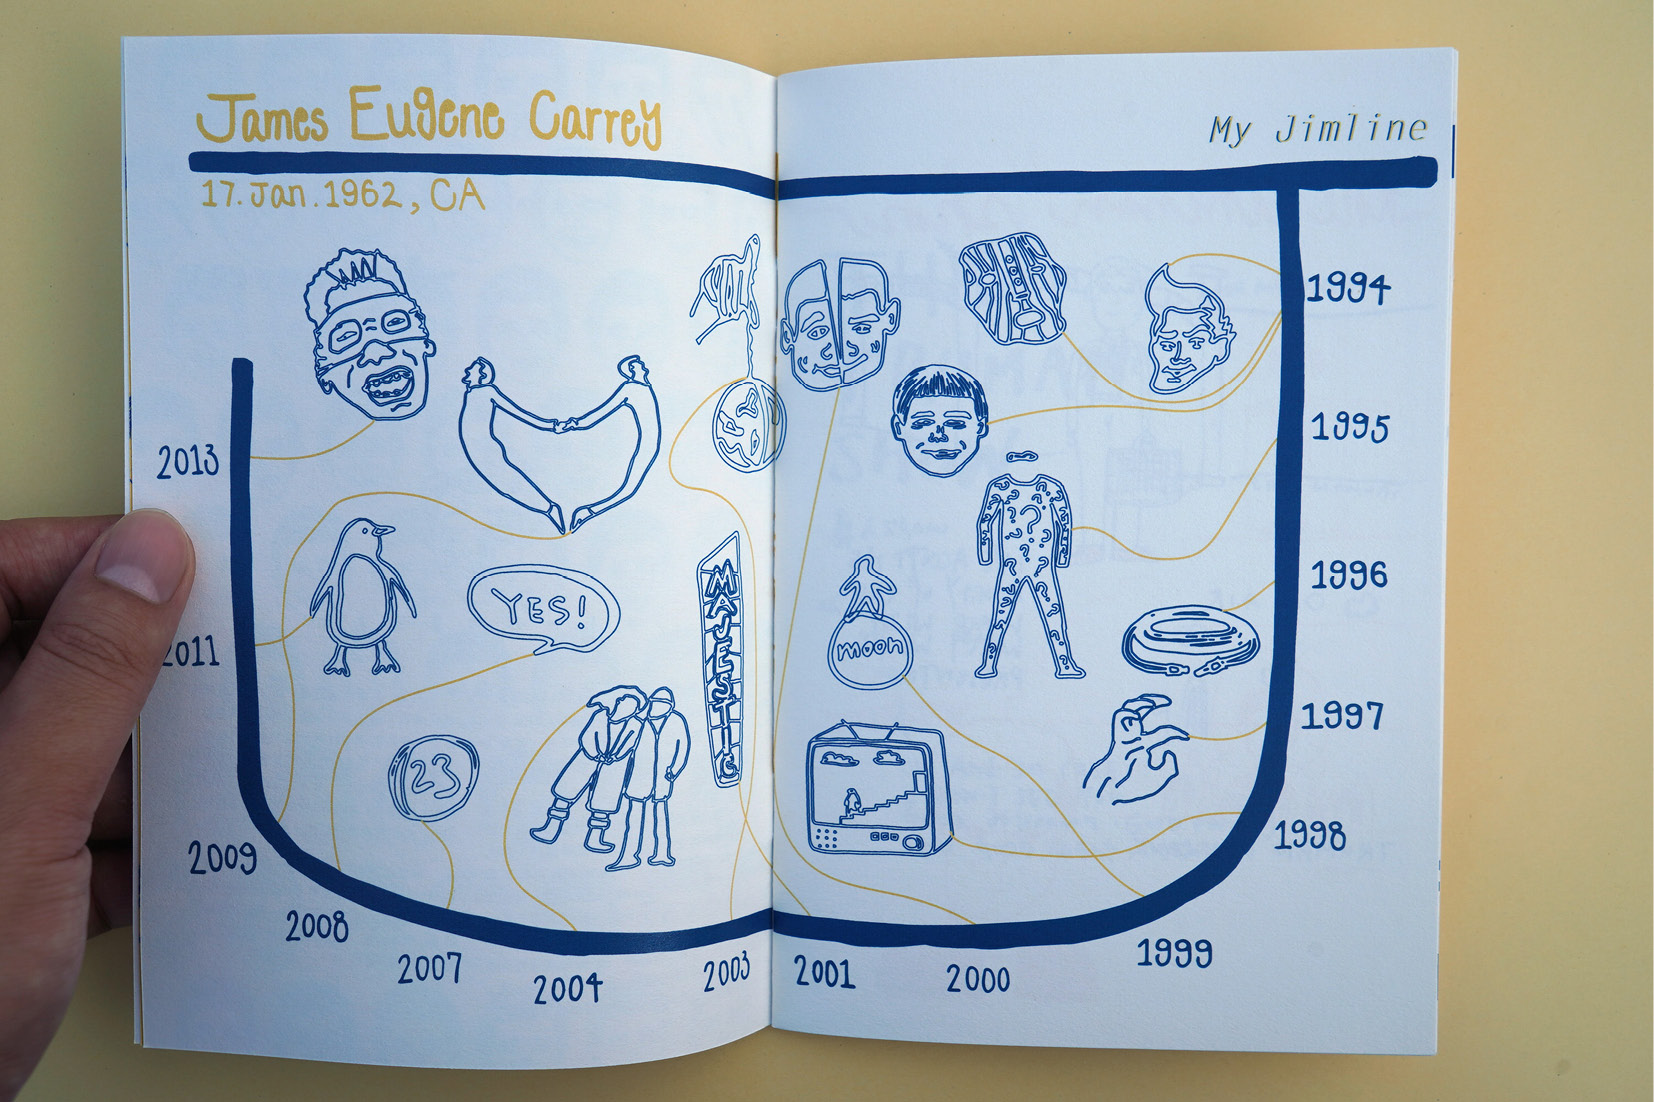 James Eugene Carrey
My Jimline
17. Jan. 1962, CA
1994
1995
2013
1996
YES!
2011
moon
MAJESTIC
1997
23
1998
2009
2008
1999
2007
2003
2001
2000
2004